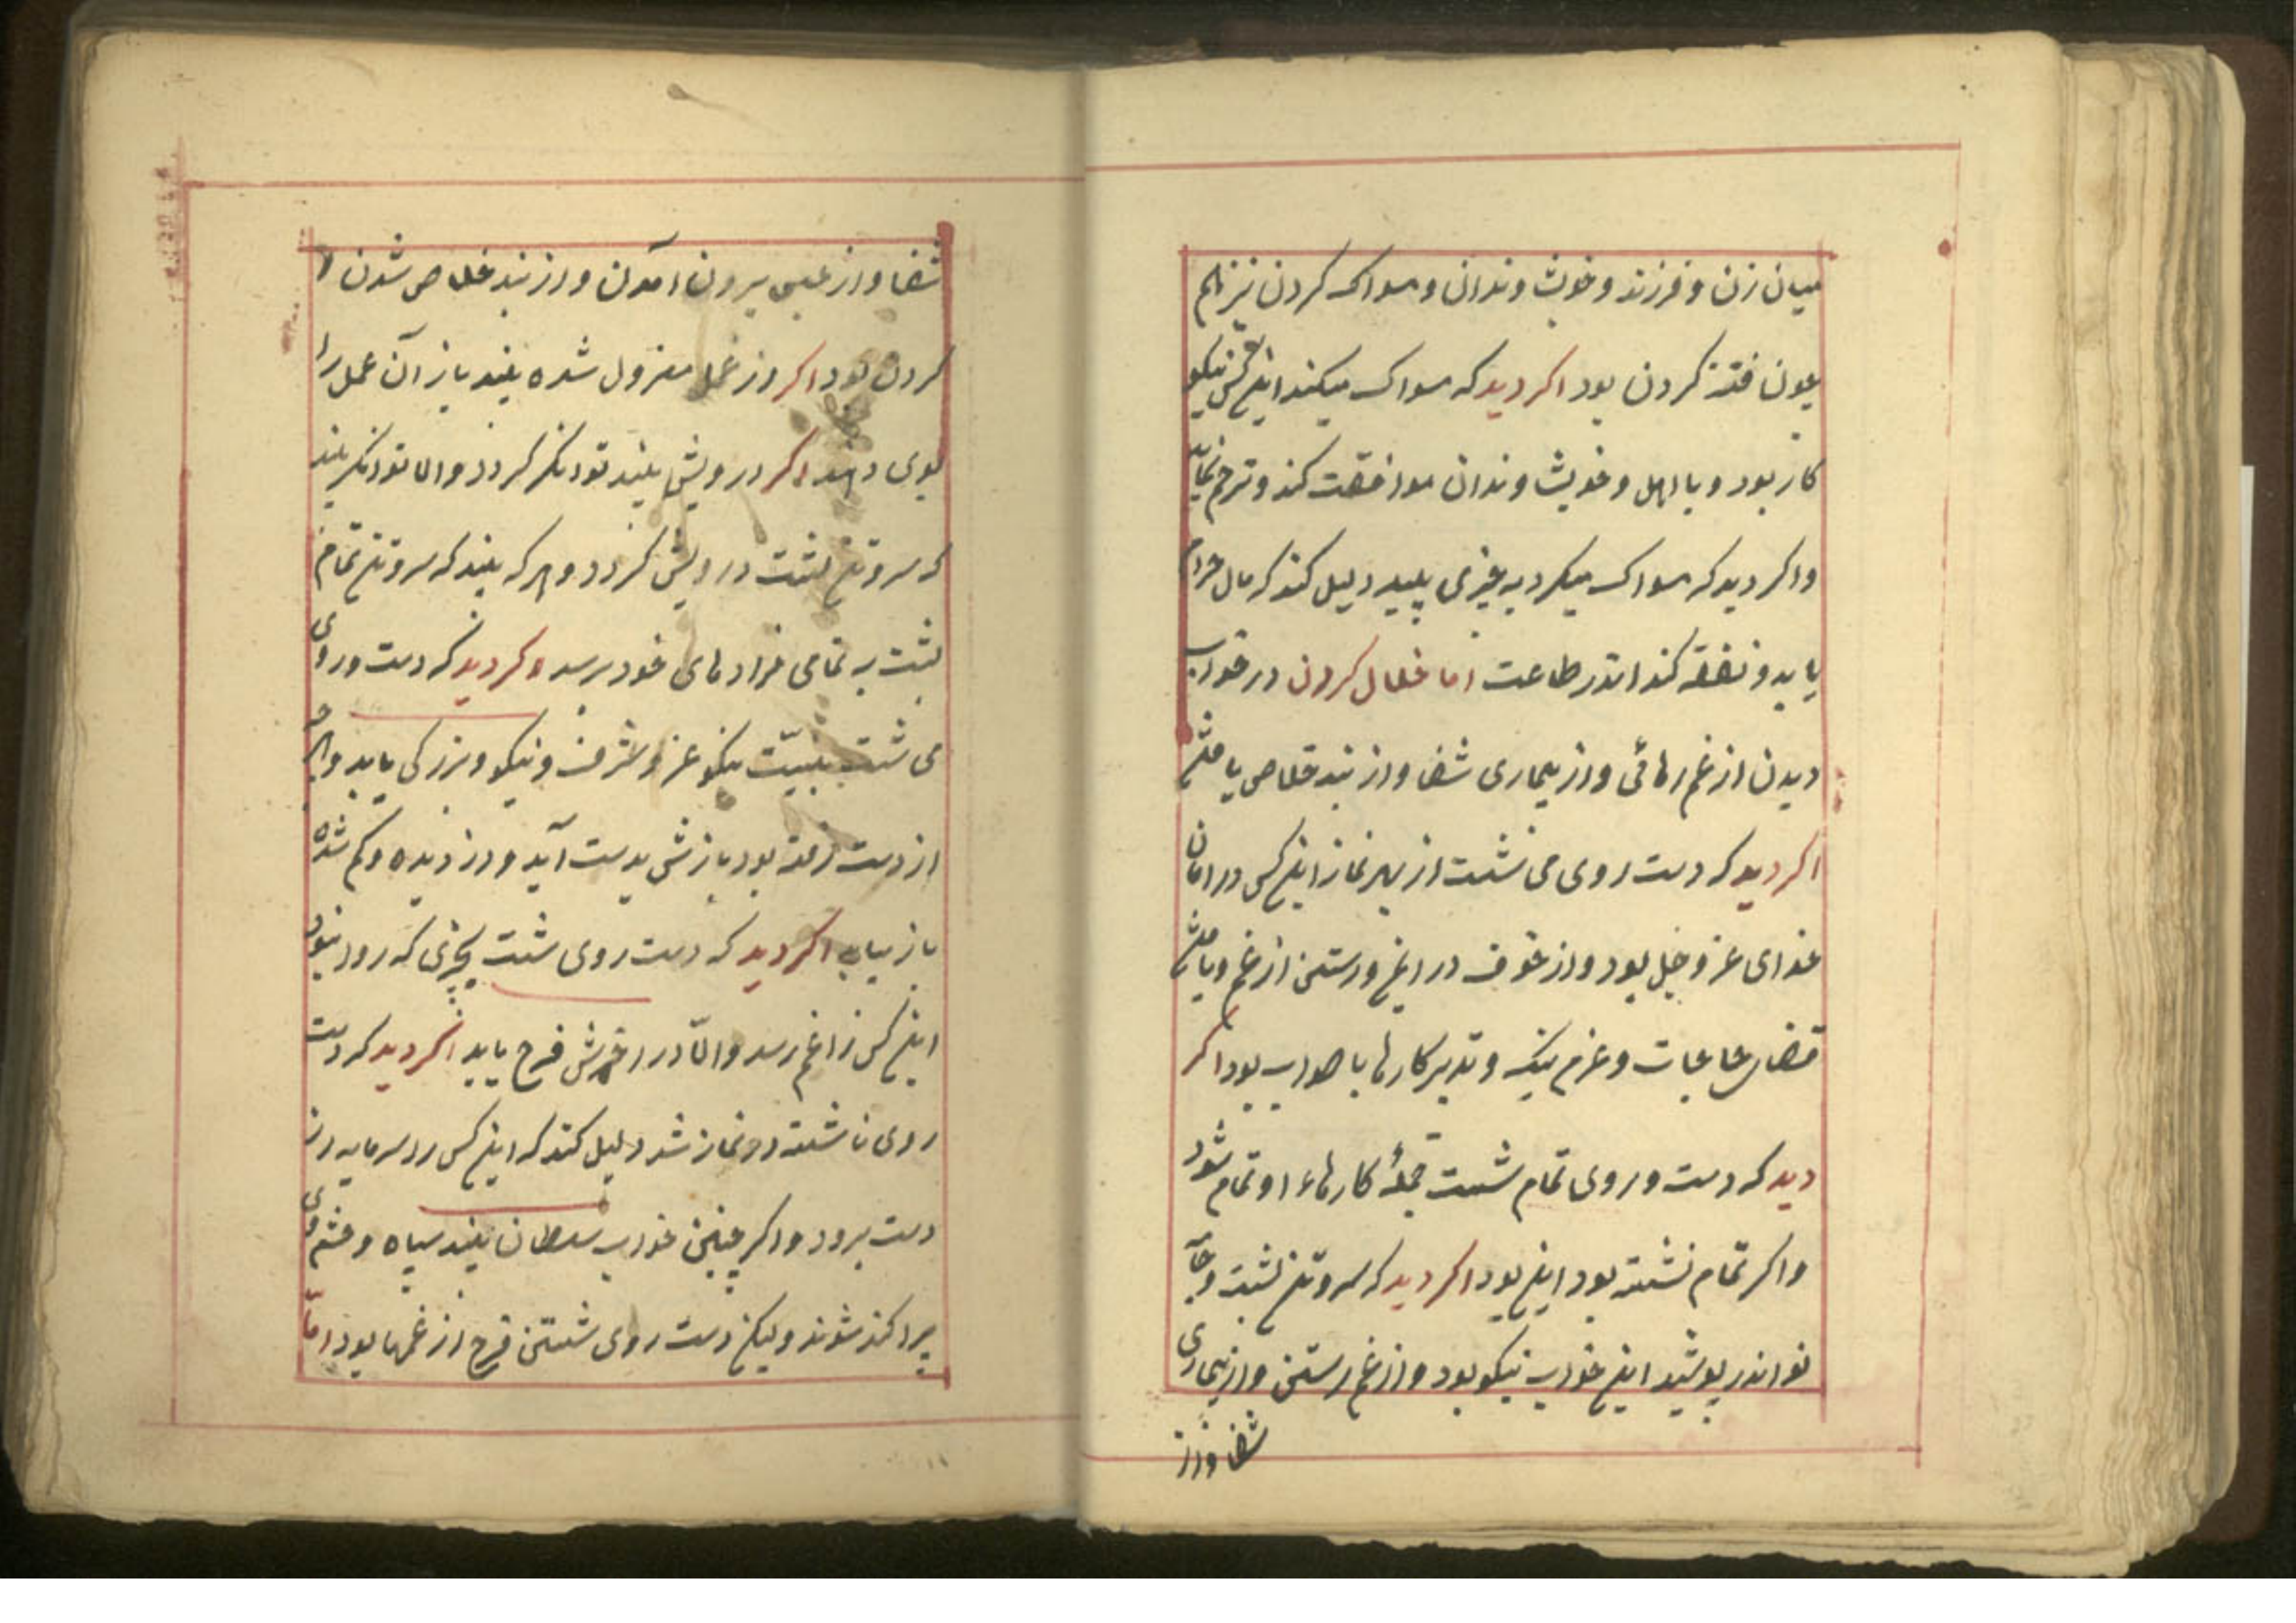 میان زن و فرزند و خویشاوندان و مسواک کردن نیز هم
چون فتنه کردن بود اکر دید که مسواک میکند اینکس نیکو
کار بود و با اهل و خویشاوندان موافقت کند و ترحم نماید
و اکر دید که مسواک میکرد به چیزی پلید دلیل کند که مال حرام
یابد و نفقه کند اندر طاعت اما غسل کردن در خواب
دیدن از غم رهائی و از بیماری شفا و از بند خلاص یافتن
اکر دید که دست روی می شست از بهر نماز اینکس در امان
خدای عز و جل بود و از خوف در ایمن و رستن از غم و یافتن
قضای حاجات و عزم نیک و تدبیر کارها با صواب بود اکر
دید که دست و روی تمام شست جملهٔ کارهاء او تمام شود
و اکر تمام نشسته بود این بود اکر دید که سر و تن بشست و جامه
نو اندر پوشید این خواب نیکو بود و از غم رستن و از بیماری
شفا و از
شفا و از حبس بیرون آمدن و از بند خلاص شدن
کردن بود اکر از عمل معزول شده بیند باز آن عمل را
بوی دهند اکر درویش بیند توانکر کردد و اما توانکر بیند
که سر و تن بشست درویش کردد و هر که بیند که سر و تن تمام
بشست به تمامی مرادهای خود برسد و اکر دید که دست و روی
می شست به نیت نیکو عز و شرف و نیکو و بزرکی یابد و هر چه
از دست رفته بود بازش بدست آید و دزدیده و کم شده
باز یابد اکر دید که دست روی شست بچیزی که روا نبود
اینکس را غم رسد و الّا در آخرش فرح یابد اکر دید که دست
روی ناشسته در نماز شد دلیل کند که اینکس را سرمایه از
دست برود و اکر چنین خواب سلطان بیند سپاه و حشم وی
پراکنده شوند ولیکن دست روی شستن فرح از غمها بود امّا